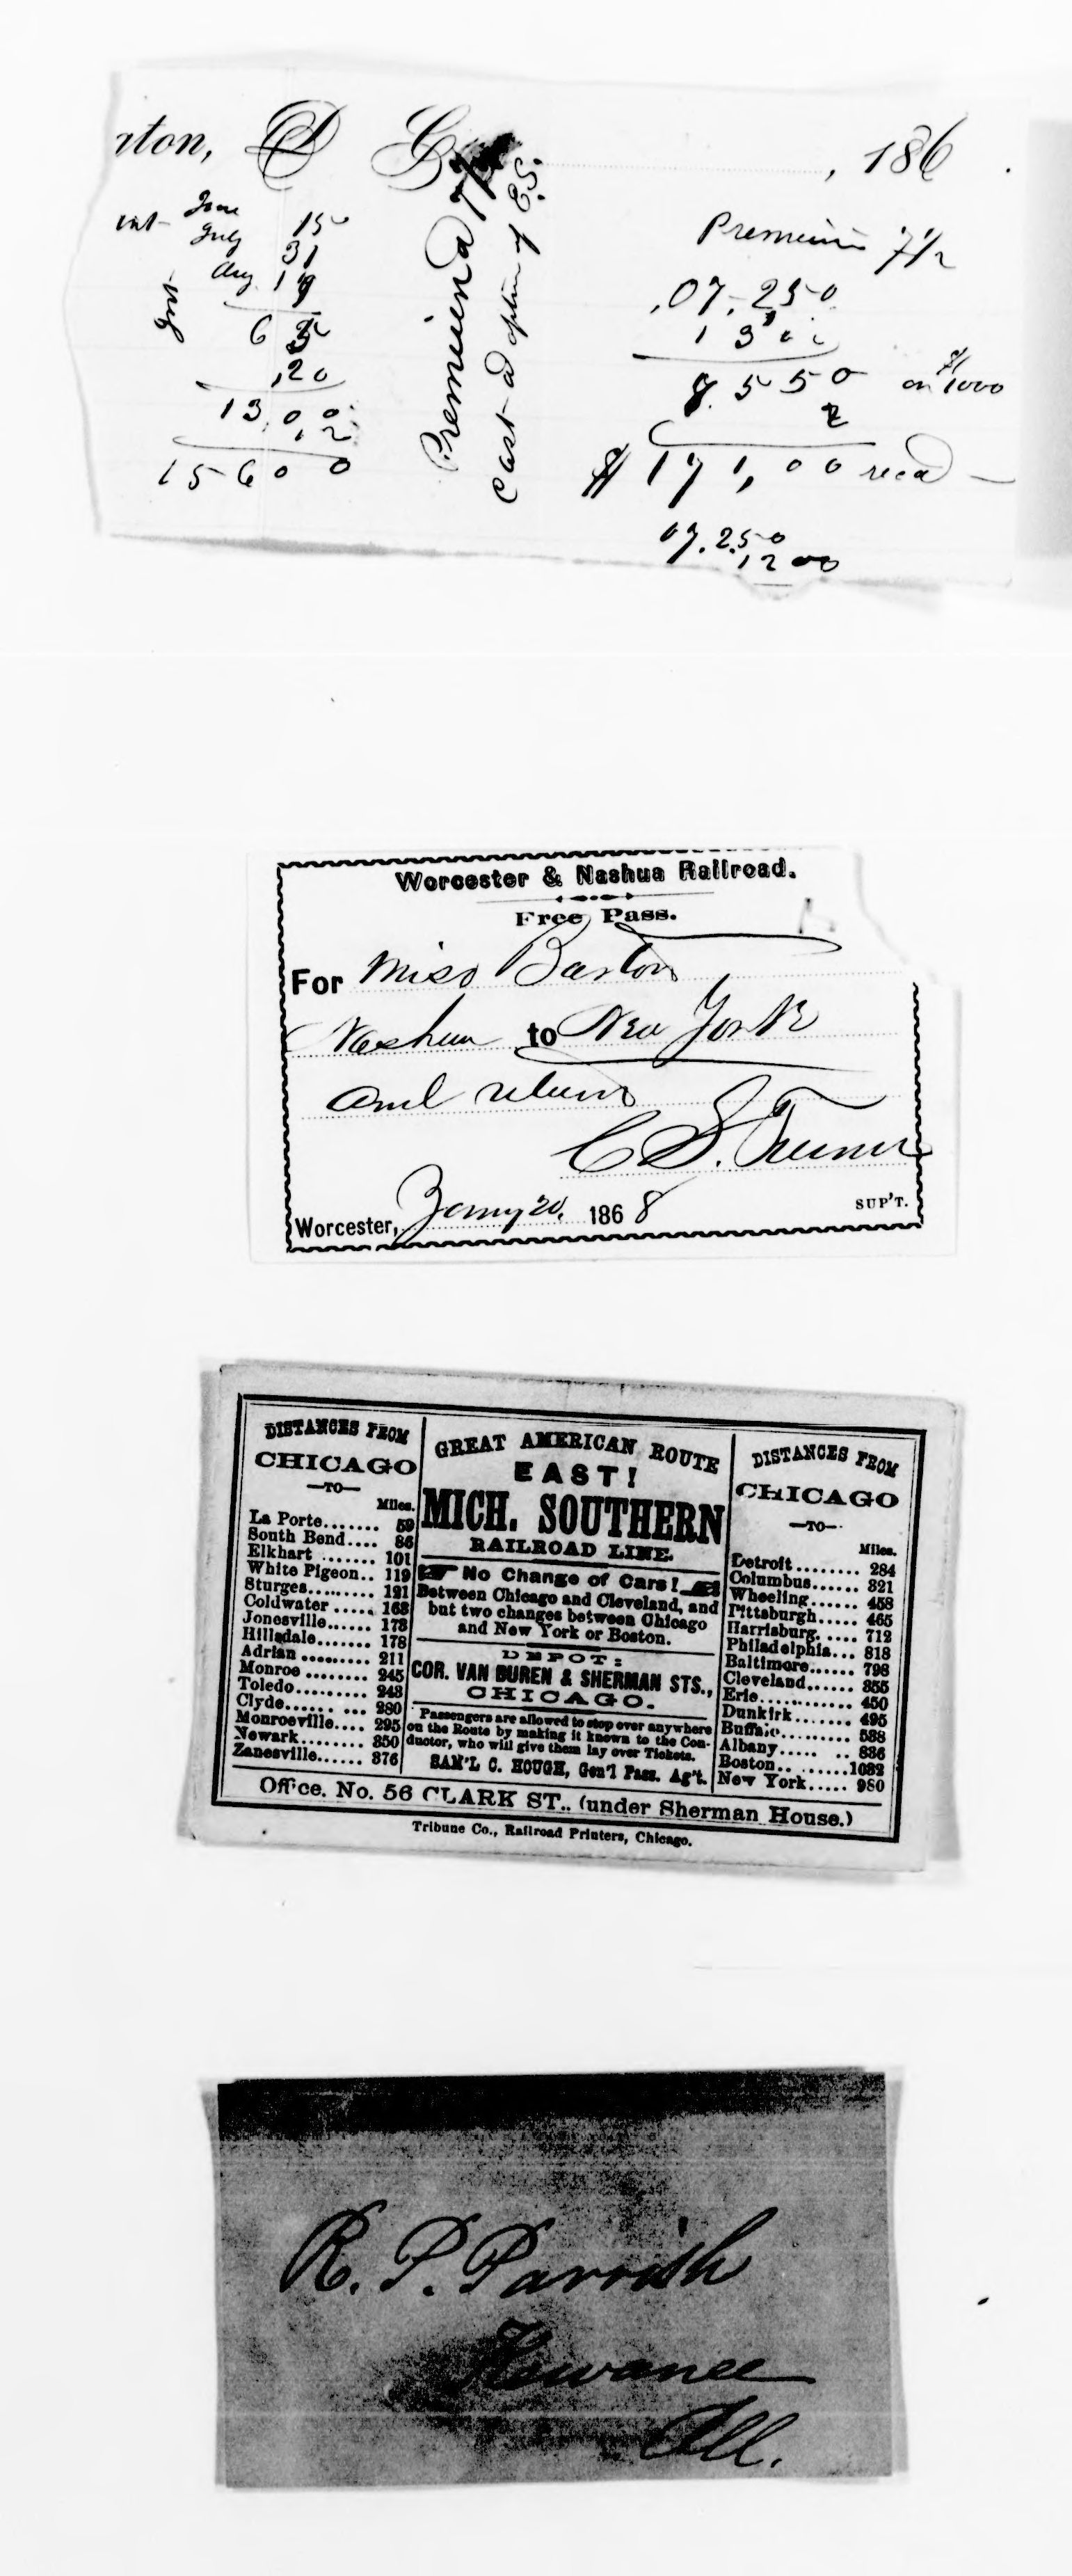 rton, D C , 186 .
int- June 15
July 31
Aug. 19
Int-
6 5
,20
13,00
,2
15600
Premium 7 1/2
Cast at option of
Premium 7 1/2
,07,250
1300
8.550 on $1000
2
$ 171,00 recd —
07.250
1200
Worcester & Nashua Railroad.
Free Pass.
For Miss Barton
Nashua to New York
and return
C S. Turner
SUP'T.
Worcester, Jany 20, 1868
DISTANCES FROM
CHICAGO
—TO—
Miles.
La Porte....... 59
South Bend.... 86
Elkhart ....... 101
White Pigeon.. 119
Sturges......... 131
Coldwater ..... 168
Jonesville...... 173
Hillsdale....... 178
Adrian .......... 211
Monroe ......... 245
Toledo.......... 243
Clyde...... ... 280
Monroeville.... 295
Newark........ 350
Zanesville...... 376
GREAT AMERICAN ROUTE
EAST!
MICH. SOUTHERN
RAILROAD LINE.
☞ No Change of Cars! ☜
Between Chicago and Cleveland, and
but two changes between Chicago
and New York or Boston.
DEPOT:
COR. VAN BUREN & SHERMAN STS.,
CHICAGO.
Passengers are allowed to stop over anywhere
on the Route by making it known to the Con-
ductor, who will give them lay over Tickets.
SAM'L C. HOUGH, Gen'l Pass. Ag't.
DISTANCES FROM
CHICAGO
—TO—
Miles.
Detroit......... 284
Columbus...... 321
Wheeling...... 458
Pittsburgh..... 465
Harrisburg. .... 712
Philadelphia... 818
Baltimore...... 798
Cleveland...... 355
Erie............. 450
Dunkirk....... 495
Buffalo......... 538
Albany..... .. 836
Boston.. ......1032
New York..... 980
Office. No. 56 CLARK ST., (under Sherman House.)
Tribune Co., Railroad Printers, Chicago.
R. P. Parrish
Kewanee
Ill.